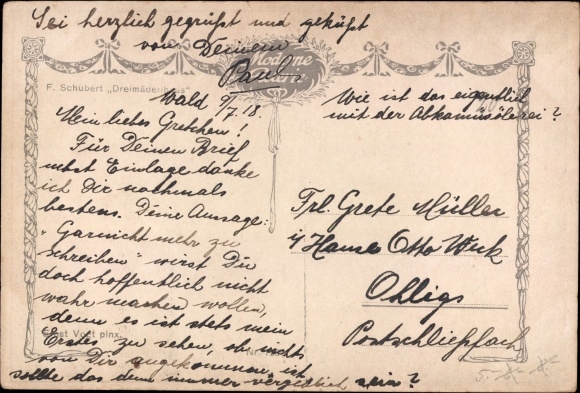 Sei herzlich gegrüßt und geküßt
von Deinem
Paul.
Moderne
F. Schubert „Dreimäderlhaus"
Wald 9/7.18.
Mein liebes Gretchen!
Für Deinen Brief
nebst Einlage danke
ich Dir nochmals
bestens. Deine Aussage:
„Garnicht mehr zu
schreiben" wirst Du
doch hoffentlich nicht
wahr machen wollen,
denn es ist stets mein
Ernst Vogt pinx.
Erstes zu sehen, ob nichts
von Dir angekommen ist
sollte das denn immer vergeblich sein?
Wie ist das eigentlich
mit der Abkamisölerei?
Frl. Grete Müller
i/ Hause Otto
Ohligs
Postschließfach